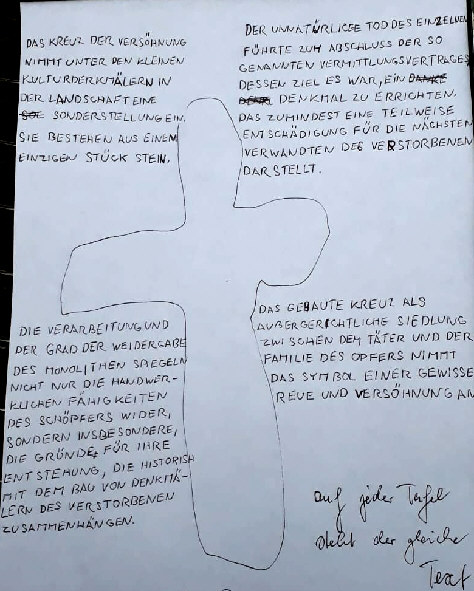 DAS KREUZ DER VERSÖHNUNG
NIMMT UNTER DEN KLEINEN
KULTURDERKMÄLERN IN
DER LANDSCHAFT EINE
SONDERSTELLUNG EIN.
SIE BESTEHEN AUS EINEM
EINZIGEN STÜCK STEIN.
DER UNNATÜRLICEE TOD DES EINZELNEN
FÜHRTE ZUM ABSCHLUSS DER SO
GENANNTEN VERMITTLUNGSVERTRAGES
DESSEN ZIEL ES WAR, EIN
DENKMAL ZU ERRICHTEN.
DAS ZUMINDEST EINE TEILWEISE
ENTSCHÄDIGUNG FÜR DIE NÄCHSTEN
VERWANDTEN DES VERSTORBENEN
DARSTELLT.
DIE VERARBEITUNG UND
DER GRAD DER WEIDERGABE
DES MONOLITHEN SPIEGELN
NICHT NUR DIE HANDWER-
KLICHEN FÄHIGKEITEN
DES SCHÖPFERS WIDER,
SONDERN INSBESONDERE,
DIE GRÜNDE, FÜR IHRE
ENTSTEHUNG, DIE HISTORISH
MIT DEM BAU VON DENKMÄ-
LERN DES VERSTORBENEN
ZUSAMMENHÄNGEN.
DAS GEBAUTE KREUZ ALS
AUßERGERICHTLICHE SIEDLUNG
ZWISCHEN DEM TÄTER UND DER
FAMILIE DES OPFERS NIMMT
DAS SYMBOL EINER GEWISSE
REUE UND VERSÖHNUNG AN
auf jeder Tafel
steht der gleiche
Text